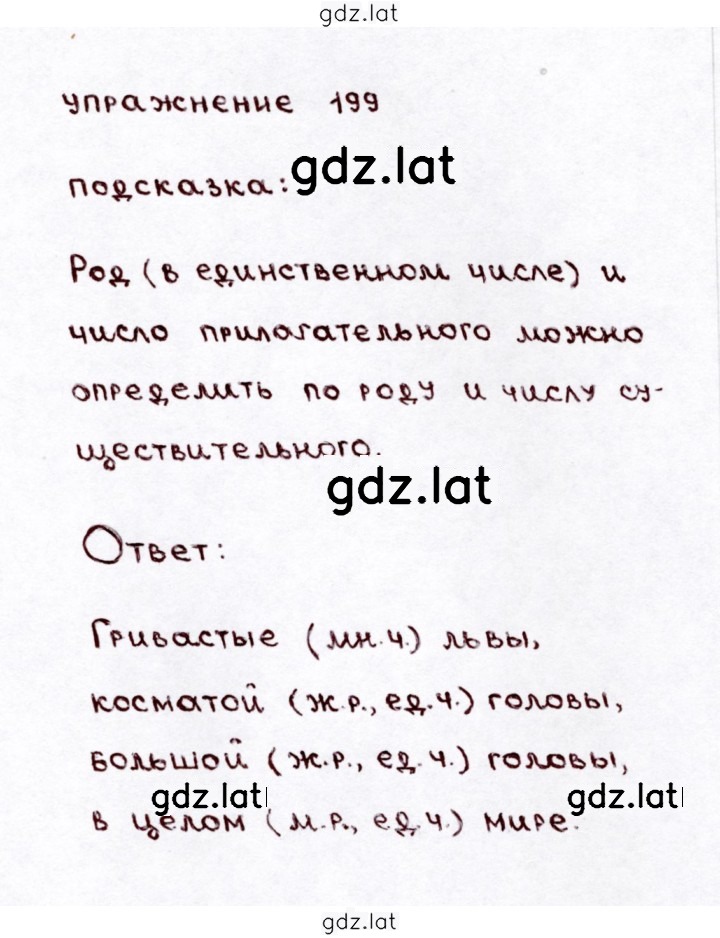 gdz.lat
упражнение 199
подсказка:
gdz.lat
Род (в единственном числе) и
число прилагательного можно
определить по роду и числу су-
ществительного.
gdz.lat
Ответ:
Гривастые (мн.ч.) львы,
косматой (ж.р., ед.ч.) головы,
большой (ж.р., ед.ч.) головы,
gdz.lat gdz.lat
в целом (м.р., ед.ч.) мире.
gdz.lat